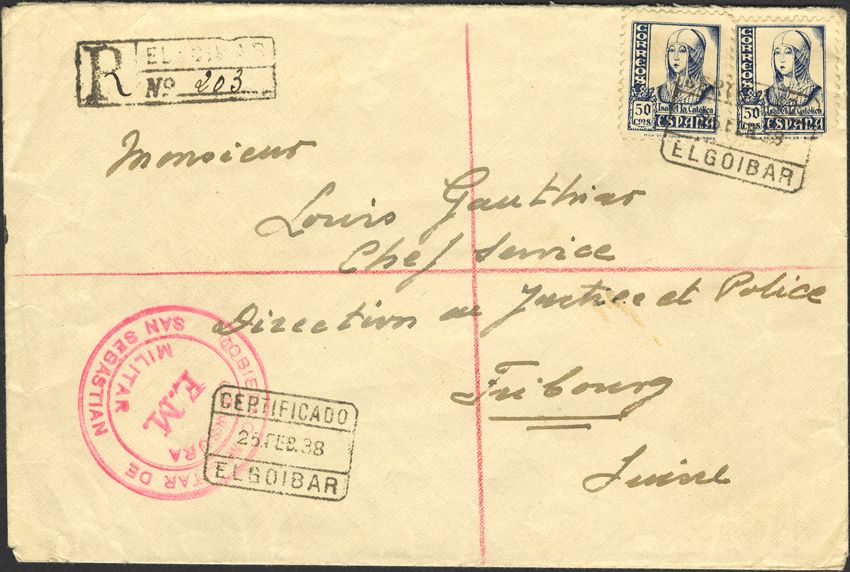 R ELGOIBAR
Nº 203
CORREOS
50 CTMS
Isabel la Católica
ESPAÑA
CORREOS
50 CTMS
Isabel la Católica
ESPAÑA
FEB 38
ELGOIBAR
Monsieur
Louis Gauthier
Chef Service
Direction de Justice et Police
Fribourg
Suisse
GOBIE TAR DE SAN SEBASTIAN
MILITAR
E.M.
CERTIFICADO
25.FEB.38
ELGOIBAR